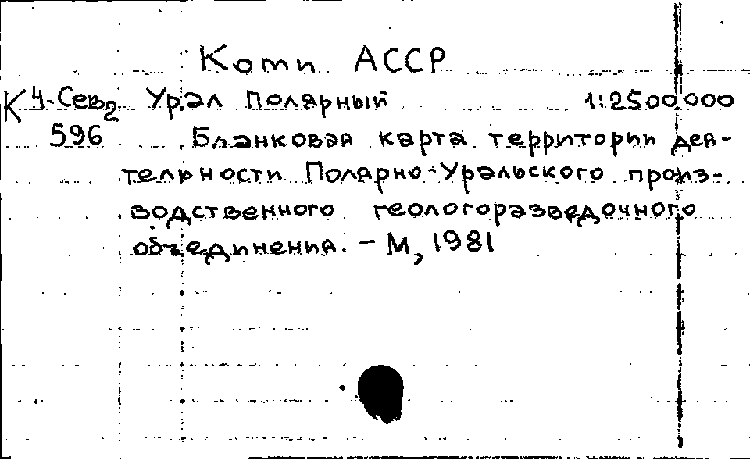 Коми АССР
К 4-Сев2 Урал Полярный 1:2500000
596 Бланковая карта территории дея-
тельности Полярно-Уральского произ-
водственного геологоразведочного
объединения. - М, 1981